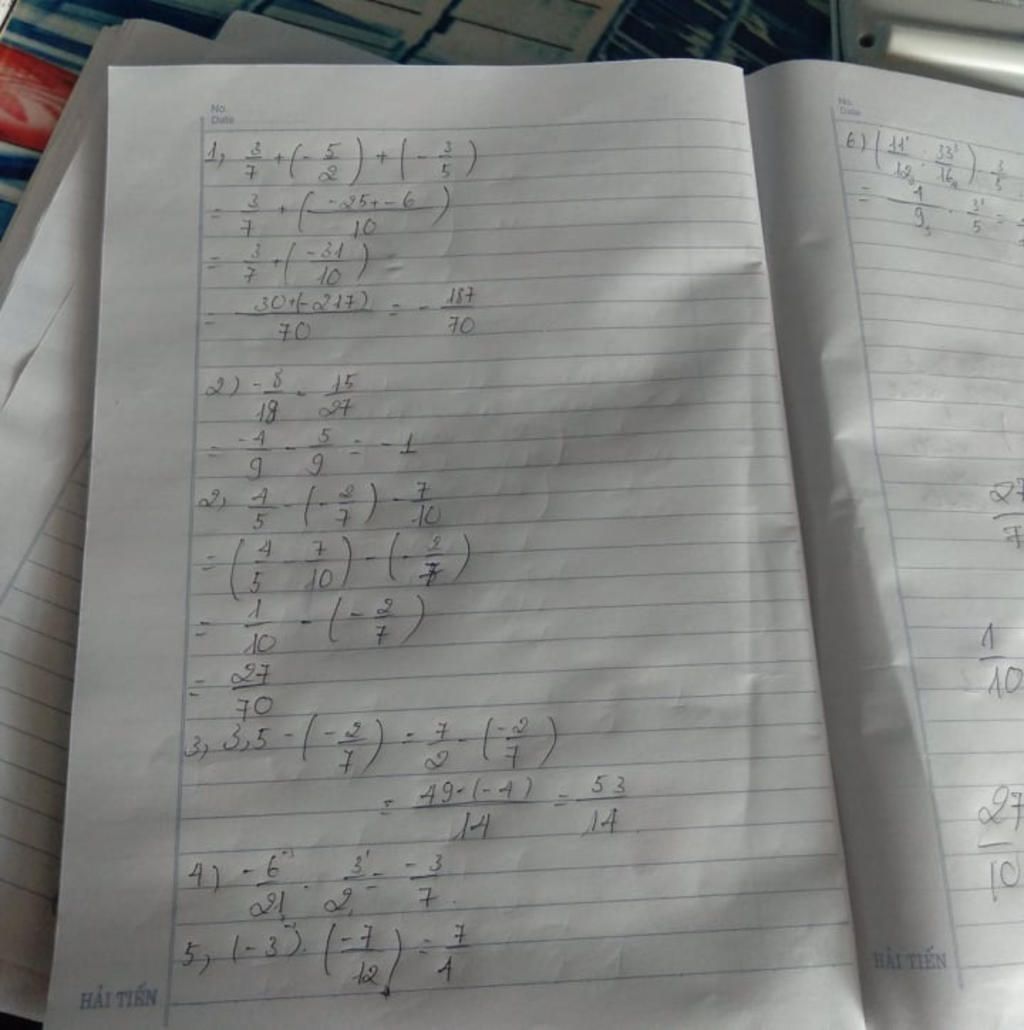 No.
Date
1, 3/7 + (- 5/2) + (- 3/5)
= 3/7 + (-25+-6/10)
= 3/7 + (-31/10)
= 30+(-217)/70 = - 187/70
2) -8/18 - 15/27
= -4/9 - 5/9 = -1
2, 4/5 - (- 2/7) - 7/10
= (4/5 - 7/10) - (- 2/7)
= 1/10 - (- 2/7)
= 27/70
3, 3,5 - (- 2/7) = 7/2 - (-2/7)
= 49-(-4)/14 = 53/14
4) -6/21 . 3/2 = -3/7
5, (-3) . (-7/12) = 7/4
HẢI TIẾN
No.
Date
6) (11/12 : 33/16) . 3/5
= 4/9 . 3/5 =
27/7
1/10
27/10
HẢI TIẾN